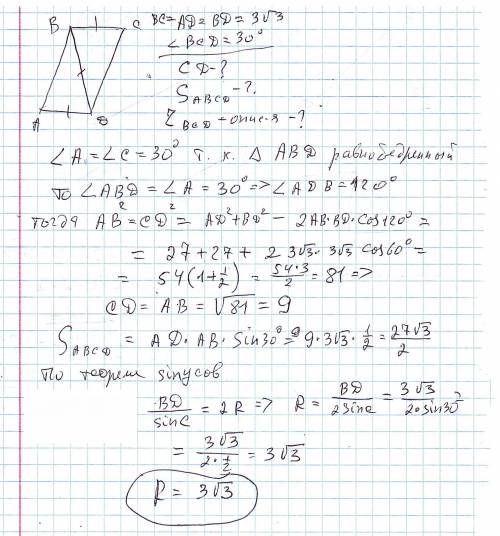 B C BC=AD=BD=3√3
∠BCD=30°
CD-?
S_ABCD -?
A D τ_BCD -опис-я -?
∠A=∠C=30° т.к. Δ ABD равнобедренный
То ∠ABD=∠A=30°=>∠ADB=120°
тогда AB²=CD²=AD²+BD²-2AB·BD·cos120°=
=27+27+2 3√3·3√3 cos60°=
=54(1+1/2)=54·3/2=81=>
CD=AB=√81=9
S_ABCD=AD·AB·sin30°=9·3√3·1/2=27√3/2
По теореме sinусов
BD/sinC=2R=> R=BD/2sinC=3√3/2·sin30°
=3√3/2·1/2=3√3
R=3√3